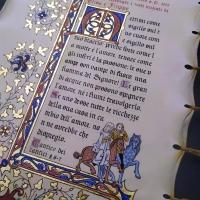 ettimi come
sigillo sul t
tuo cuore come
sigillo sul
tuo braccio perché forte come l
a morte è l'amore, tenace come
gli inferi è la passione: le sue v
ampe son vampe di fuoco, una
fiamma del Signore! Le gran
di acque non possono spegner
l'amore, né i fiumi travolgerlo.
Se uno desse tutte le ricchezze
della sua casa in ca
mbio dell'amore, no
n ne avrebbe che
dispregio.
Cantico dei
cantici 8,6-7